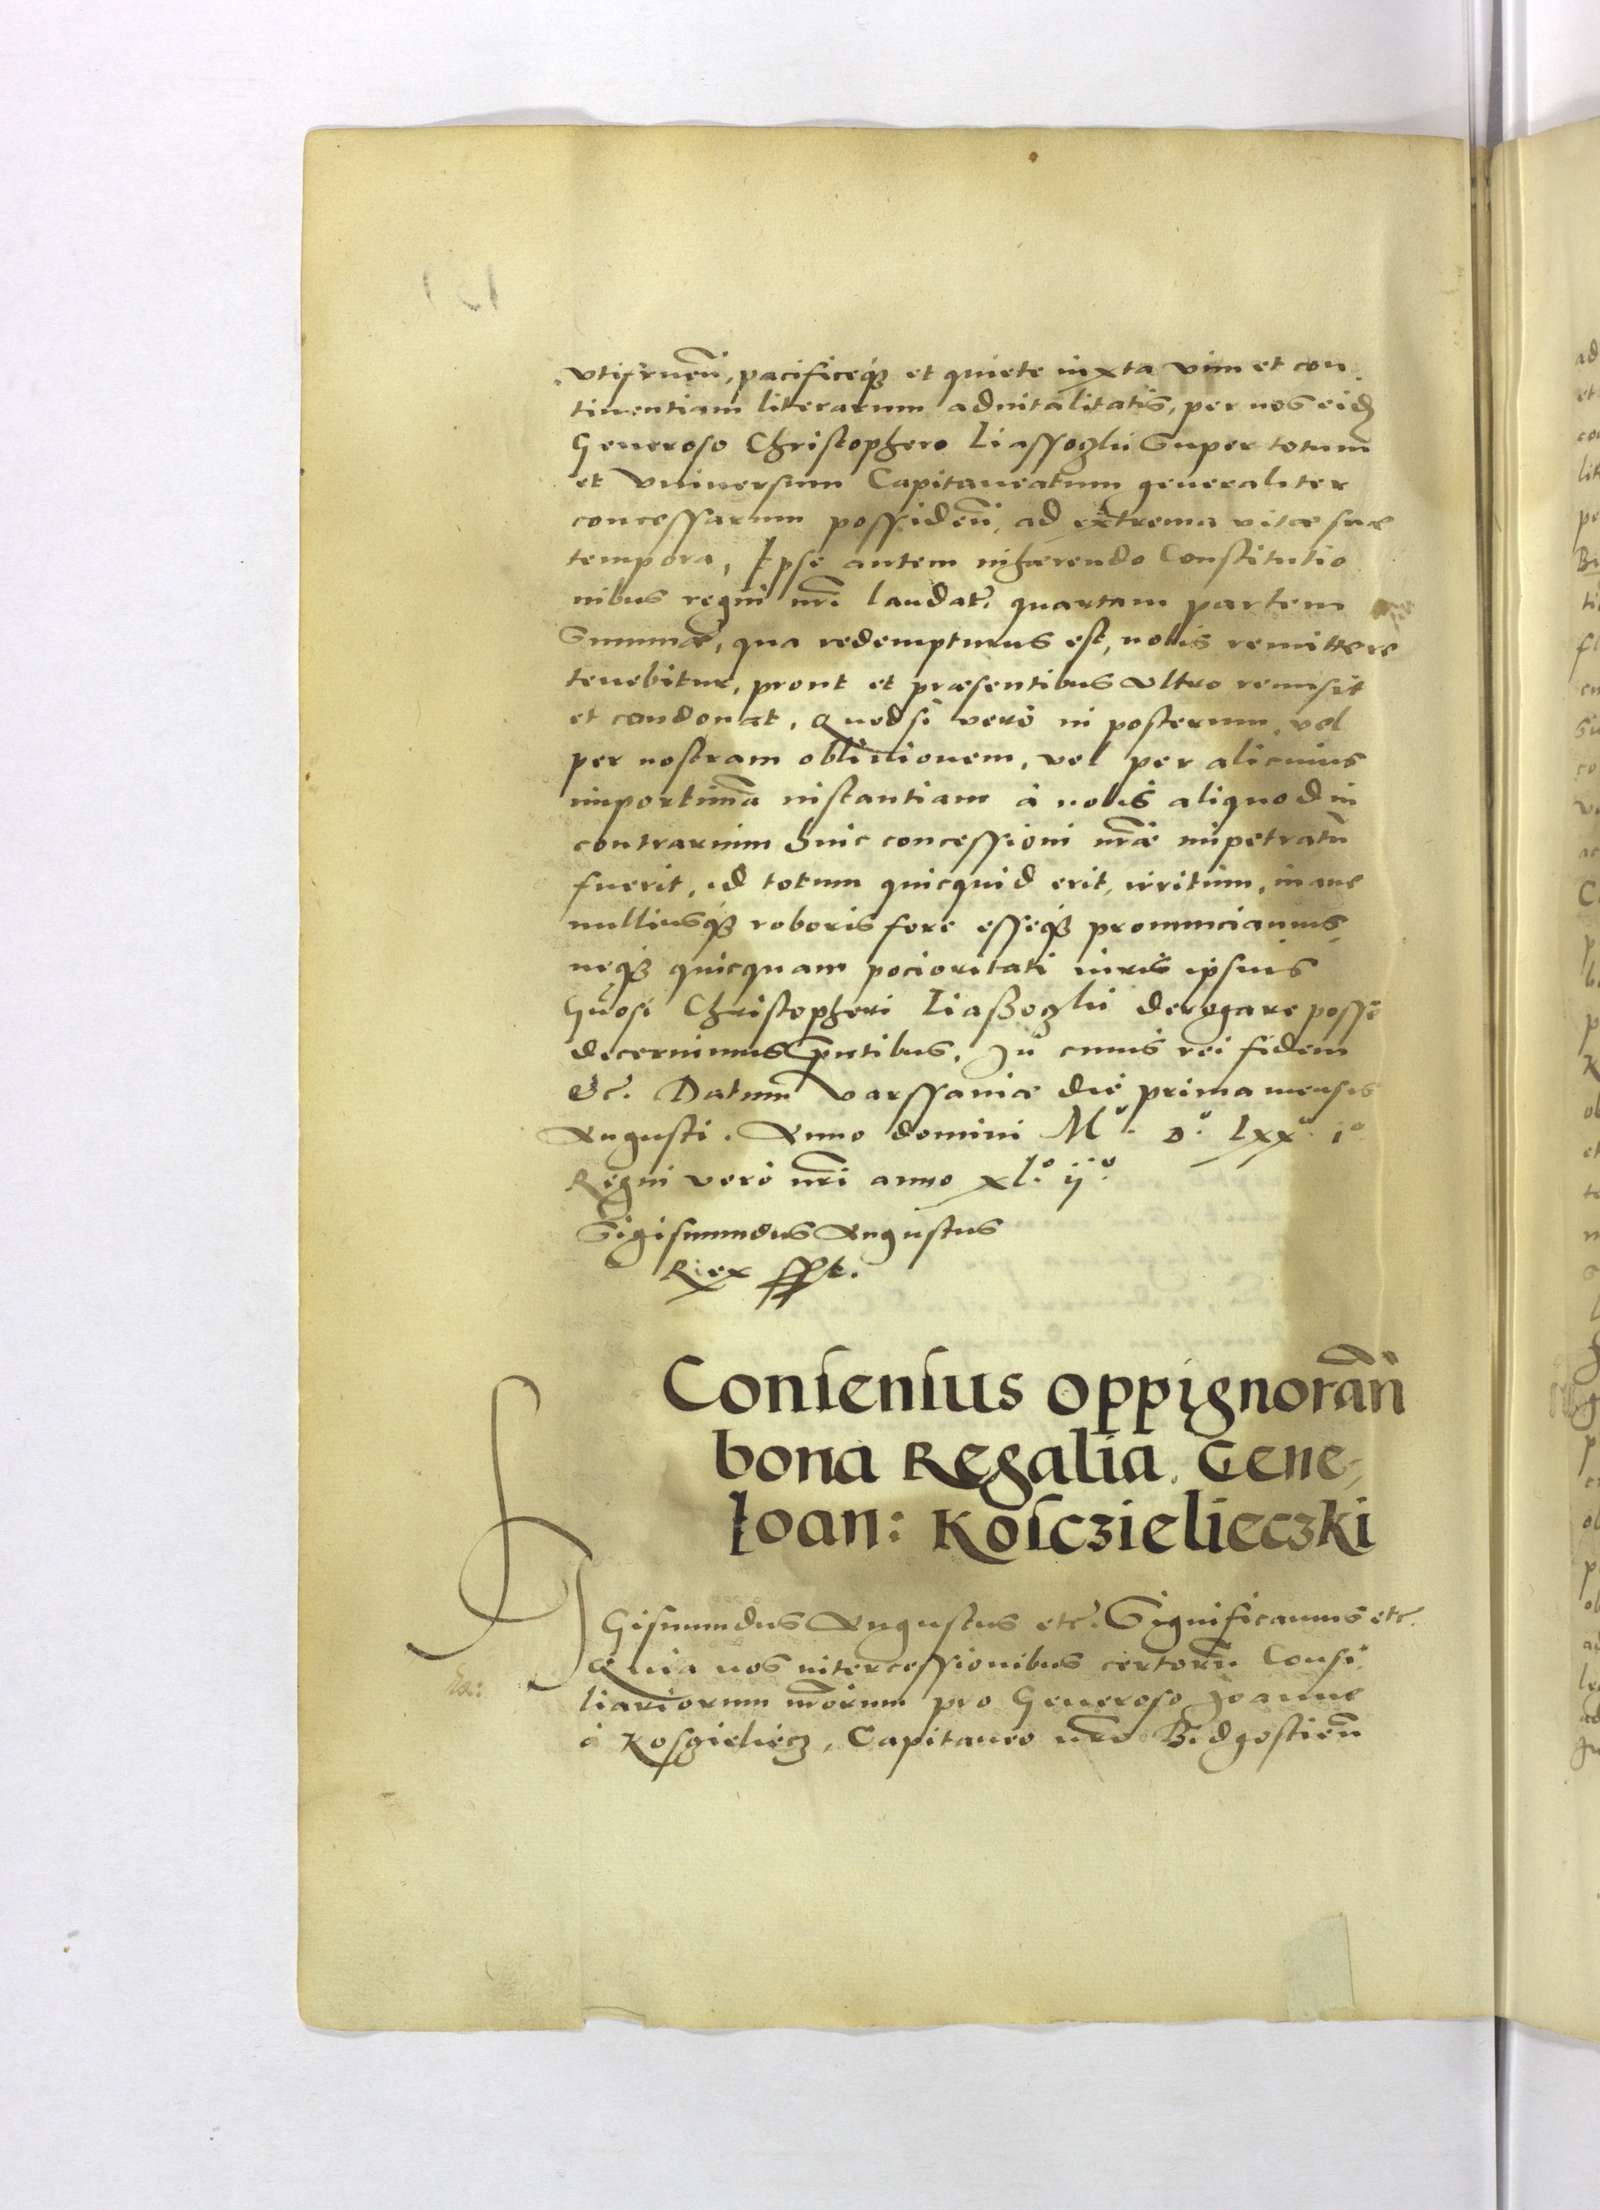 utifruen̄, pacificeq3 et quiete iuxta vim et con
tinentiam literarum aduitalitatis, per nos eid
Generoso Christophero Liassoghi Super totum
et vniuersum Capitaneatum generaliter
concessarum possiden̄, ad extrema vitæ suæ
tempora, Ipse autem inhærendo Constitutio
nibus regni nr̄i laudat. quartam partem
Summæ, qua redempturus est, nobis remittere
tenebitur, prout et præsentibus vltro remisit
et condonat, Quod si vero in posterum, vel
per nostram obliuionem, vel per alicuius
importunā instantiam à nobis aliquod in
contrarium huic concessioni nr̄æ impetratū
fuerit, id totum quicquid erit, irritum, inane
nulliusq3 roboris fore esseq3 pronunciamus,
neq3 quicquam pocioritati iuris ipsius
Gn̄osi Christopheri Liaßoghi derogare posse
decernimus pn̄tibus, In cuius rei fidem
&c. Datum Varssauiæ die prima mensis
Augusti. Anno domini Mº. Dº. lxxº. iº.
Regni vero nr̄i anno xlº. ijº.
Sigismundus Augustus
Rex sspt.
Consensus oppignoran̄
bona Regalia. Gene-
Ioan: Kosczielieczki
SIGismundus Augustus etc. Significamus etc.
Quia nos intercessionibus certorū Consi
liariorum nr̄orum pro Generoso Joanne
à Koszieliecz, Capitaneo nr̄o Bidgostien̄